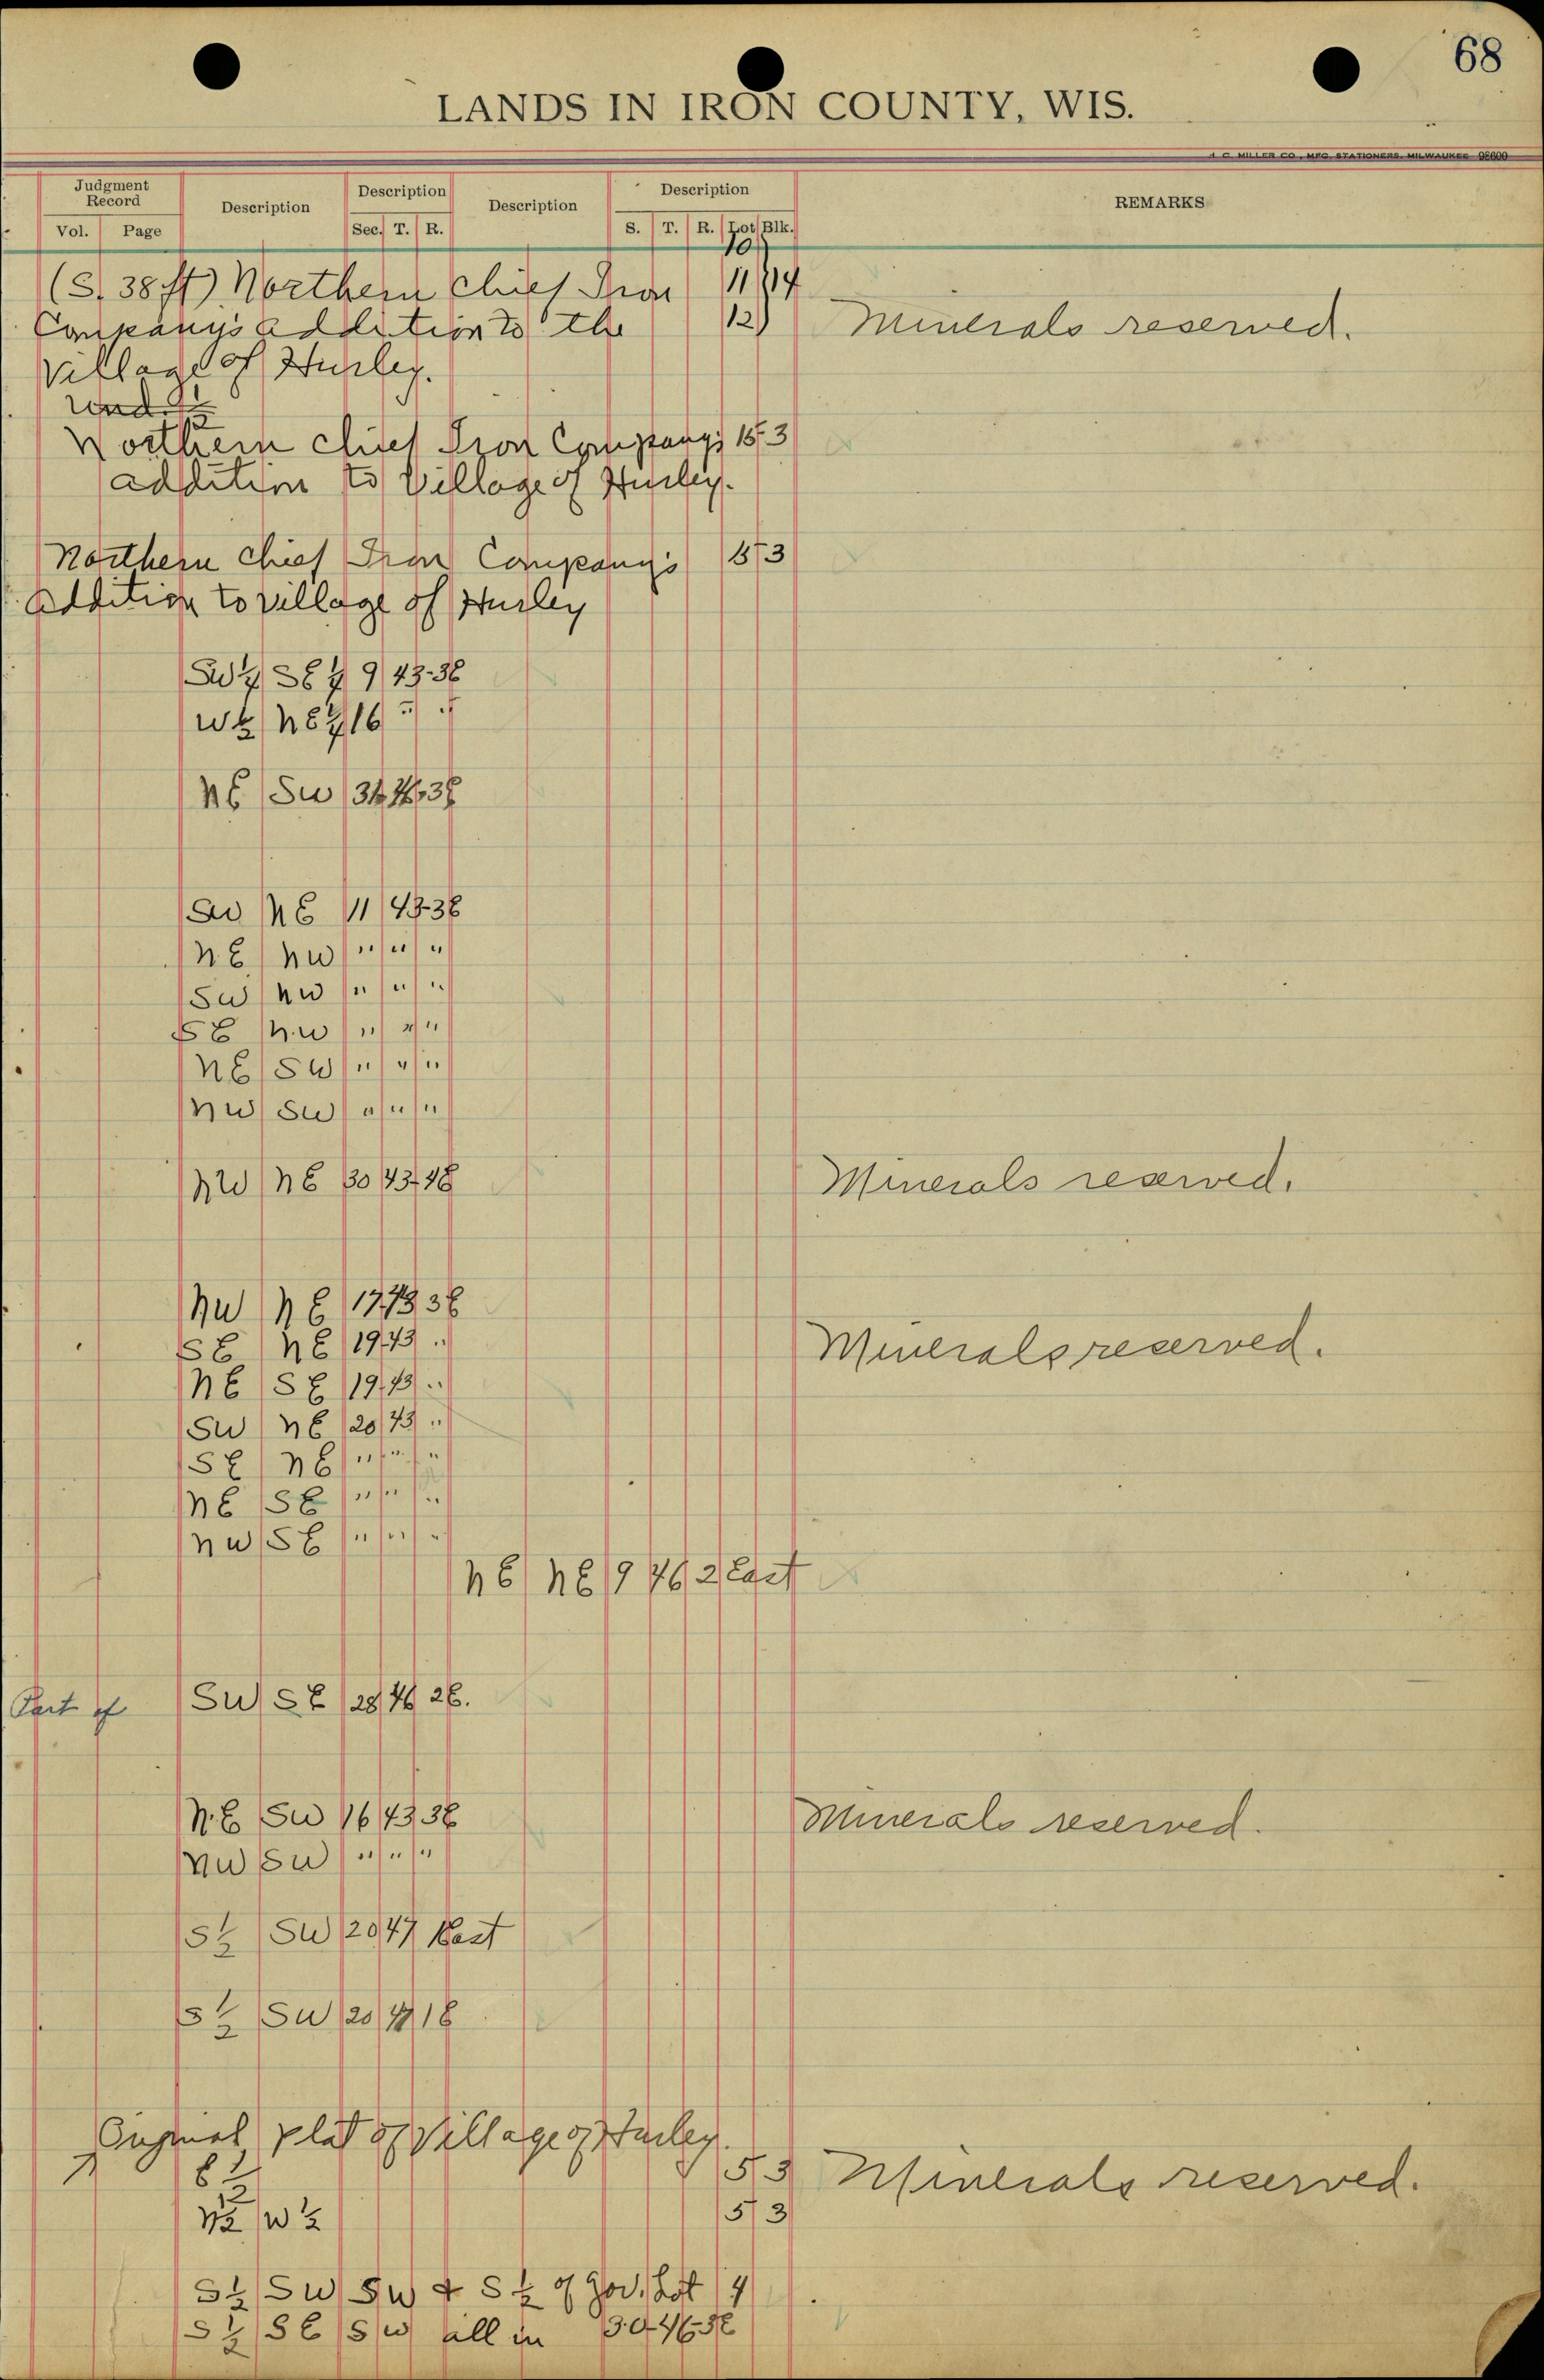 68
LANDS IN IRON COUNTY, WIS.
H. C. MILLER CO., MFG. STATIONERS, MILWAUKEE 98600
Judgment Record Description Description Description Description REMARKS
Vol. Page Sec. T. R. S. T. R. Lot Blk.
10
(S. 38 ft) Northern Chief Iron 11 14
Company's addition to the 12 Minerals reserved.
Village of Hurley.
und. 1/2
Northern Chief Iron Company's 15 3
addition to Village of Hurley.
Northern Chief Iron Company's 15 3
Addition to village of Hurley
SW 1/4 SE 1/4 9 43-3E
W 1/2 NE 1/4 16 " "
NE SW 31 46 3E
SW NE 11 43-3E
NE NW " " "
SW NW " " "
SE NW " " "
NE SW " " "
NW SW " " "
NW NE 30 43-4E Minerals reserved.
NW NE 17 43 3E
SE NE 19 43 " Minerals reserved.
NE SE 19 43 "
SW NE 20 43 "
SE NE " " "
NE SE " " "
NW SE " " "
NE NE 9 46 2 East
Part of SW SE 28 46 2E.
N.E SW 16 43 3E Minerals reserved.
NW SW " " "
S 1/2 SW 20 47 East
S 1/2 SW 20 47 1E
Original plat of Village of Hurley.
E 1/2 5 3 Minerals reserved.
N 1/2 W 1/2 5 3
S 1/2 SW SW & S 1/2 of Gov. Lot 4
S 1/2 SE SW all in 30-46-3E